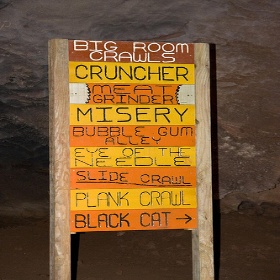 BIG ROOM
CRAWLS
CRUNCHER
MEAT
GRINDER
MISERY
BUBBLE GUM
ALLEY
EYE OF THE
NEEDLE
SLIDE CRAWL
PLANK CRAWL
BLACK CAT →